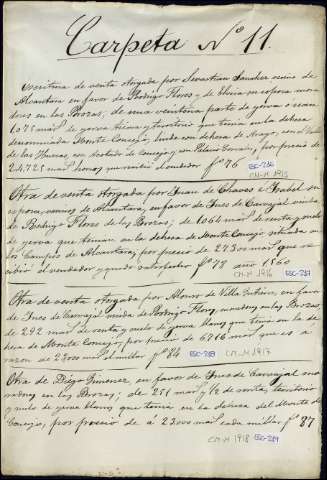 Carpeta Nº 11.
Escritura de venta otorgada por Sebastian Sanchez vecino de
Alcantara en favor de Rodrigo Flores, de Ulloa su esposa mora
dores en las Brozas, de una veintena parte de yerva o sean
1.071 mrs. de yerva tierra y territorio que tenia en la dehesa
denominada Monte Concejo, linda con dehesa de Arago, con el Valle
de las Huesas, con el estado de Concejo y con por precio de
24.721 mrs. f.º 76 ESC-286
CM-M 1915
Otra de venta otorgada por Juan de Chaves e Ysabel su
esposa, vecinos de Alcantara, en favor de Ines de Carvajal viuda
de Rodrigo Flores de las Brozas; de 1.064 mrs. de renta y suelo
de yerva que tenian en la dehesa de Monte Concejo situada en
los Campos de Alcantara, por precio de 27.300 mrs. que re
cibió el vendedor y quedó satisfecho f.º 78 año 1560
CM-M 1916 ESC-287
Otra de venta otorgada por Alonso de Villa en favor
de Ines de Carvajal viuda de Rodrigo Flores, moradora en las Brozas
de 292 mrs. de renta y suelo de yerva llanos que tenia en la dehe
sa de Monte Concejo, por precio de 6.716 mrs. que es á
razon de 23.000 mrs. el millar f.º 84 ESC-288 CM-M 1917
Otra de Diego Gimenez, en favor de Ines de Carvajal mo
radora en las Brozas; de 251 mrs. y ½ de renta, territorio
y suelo de yerva llanos que tenia en la dehesa del Monte de
Concejo, por precio de á 23.000 mrs. cada millar f.º 87
CM-M 1918 ESC-289